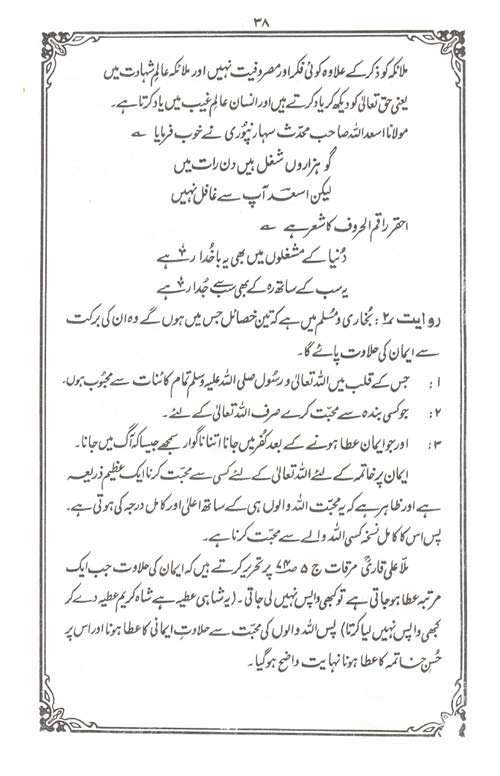 ۳۸
ملائکہ کو ذکر کے علاوہ کوئی فکر اور مصروفیت نہیں اور ملائکہ عالمِ شہادت میں
یعنی حق تعالیٰ کو دیکھ کر یاد کرتے ہیں اور انسان عالمِ غیب میں یاد کرتا ہے۔
مولانا اسعد اللہ صاحب محدّث سہارنپوری نے خوب فرمایا ؎
گو ہزاروں شغل ہیں دن رات میں
لیکن اسعدؔ آپ سے غافل نہیں
احقر راقم الحروف کا شعر ہے ؎
دُنیا کے مشغلوں میں بھی یہ باخُدا رہے
یہ سب کے ساتھ رہ کے بھی سب سے جُدا رہے
روایت ۲: بُخاری و مُسلم میں ہے کہ تین خصائل جس میں ہوں گے وہ ان کی برکت
سے ایمان کی حلاوت پائے گا۔
۱: جس کے قلب میں اللہ تعالیٰ و رسُول صلی اللہ علیہ وسلم تمام کائنات سے محبُوب ہوں۔
۲: جو کسی بندہ سے محبّت کرے صرف اللہ تعالیٰ کے لئے۔
۳: اور جو ایمان عطا ہونے کے بعد کُفر میں جانا اتنا ناگوار سمجھے جیسا کہ آگ میں جانا۔
ایمان پر خاتمہ کے لئے اللہ تعالیٰ کے لئے کسی سے محبّت کرنا ایک عظیم ذریعہ
ہے اور ظاہر ہے کہ یہ محبّت اللہ والوں ہی کے ساتھ اعلیٰ اور کامل درجہ کی ہوتی ہے۔
پس اس کا کامل نسخہ کسی اللہ والے سے محبّت کرنا ہے۔
مُلّا علی قاریؒ مرقات ج ۵ ص۷۴ پر تحریر کرتے ہیں کہ ایمان کی حلاوت جب ایک
مرتبہ عطا ہو جاتی ہے تو کبھی واپس نہیں لی جاتی۔ (یہ شاہی عطیہ ہے شاہ کریم عطیہ دے کر
کبھی واپس نہیں لیا کرتا) پس اللہ والوں کی محبّت سے حلاوتِ ایمانی کا عطا ہونا اور اس پر
حُسنِ خاتمہ کا عطا ہونا نہایت واضح ہوگیا۔